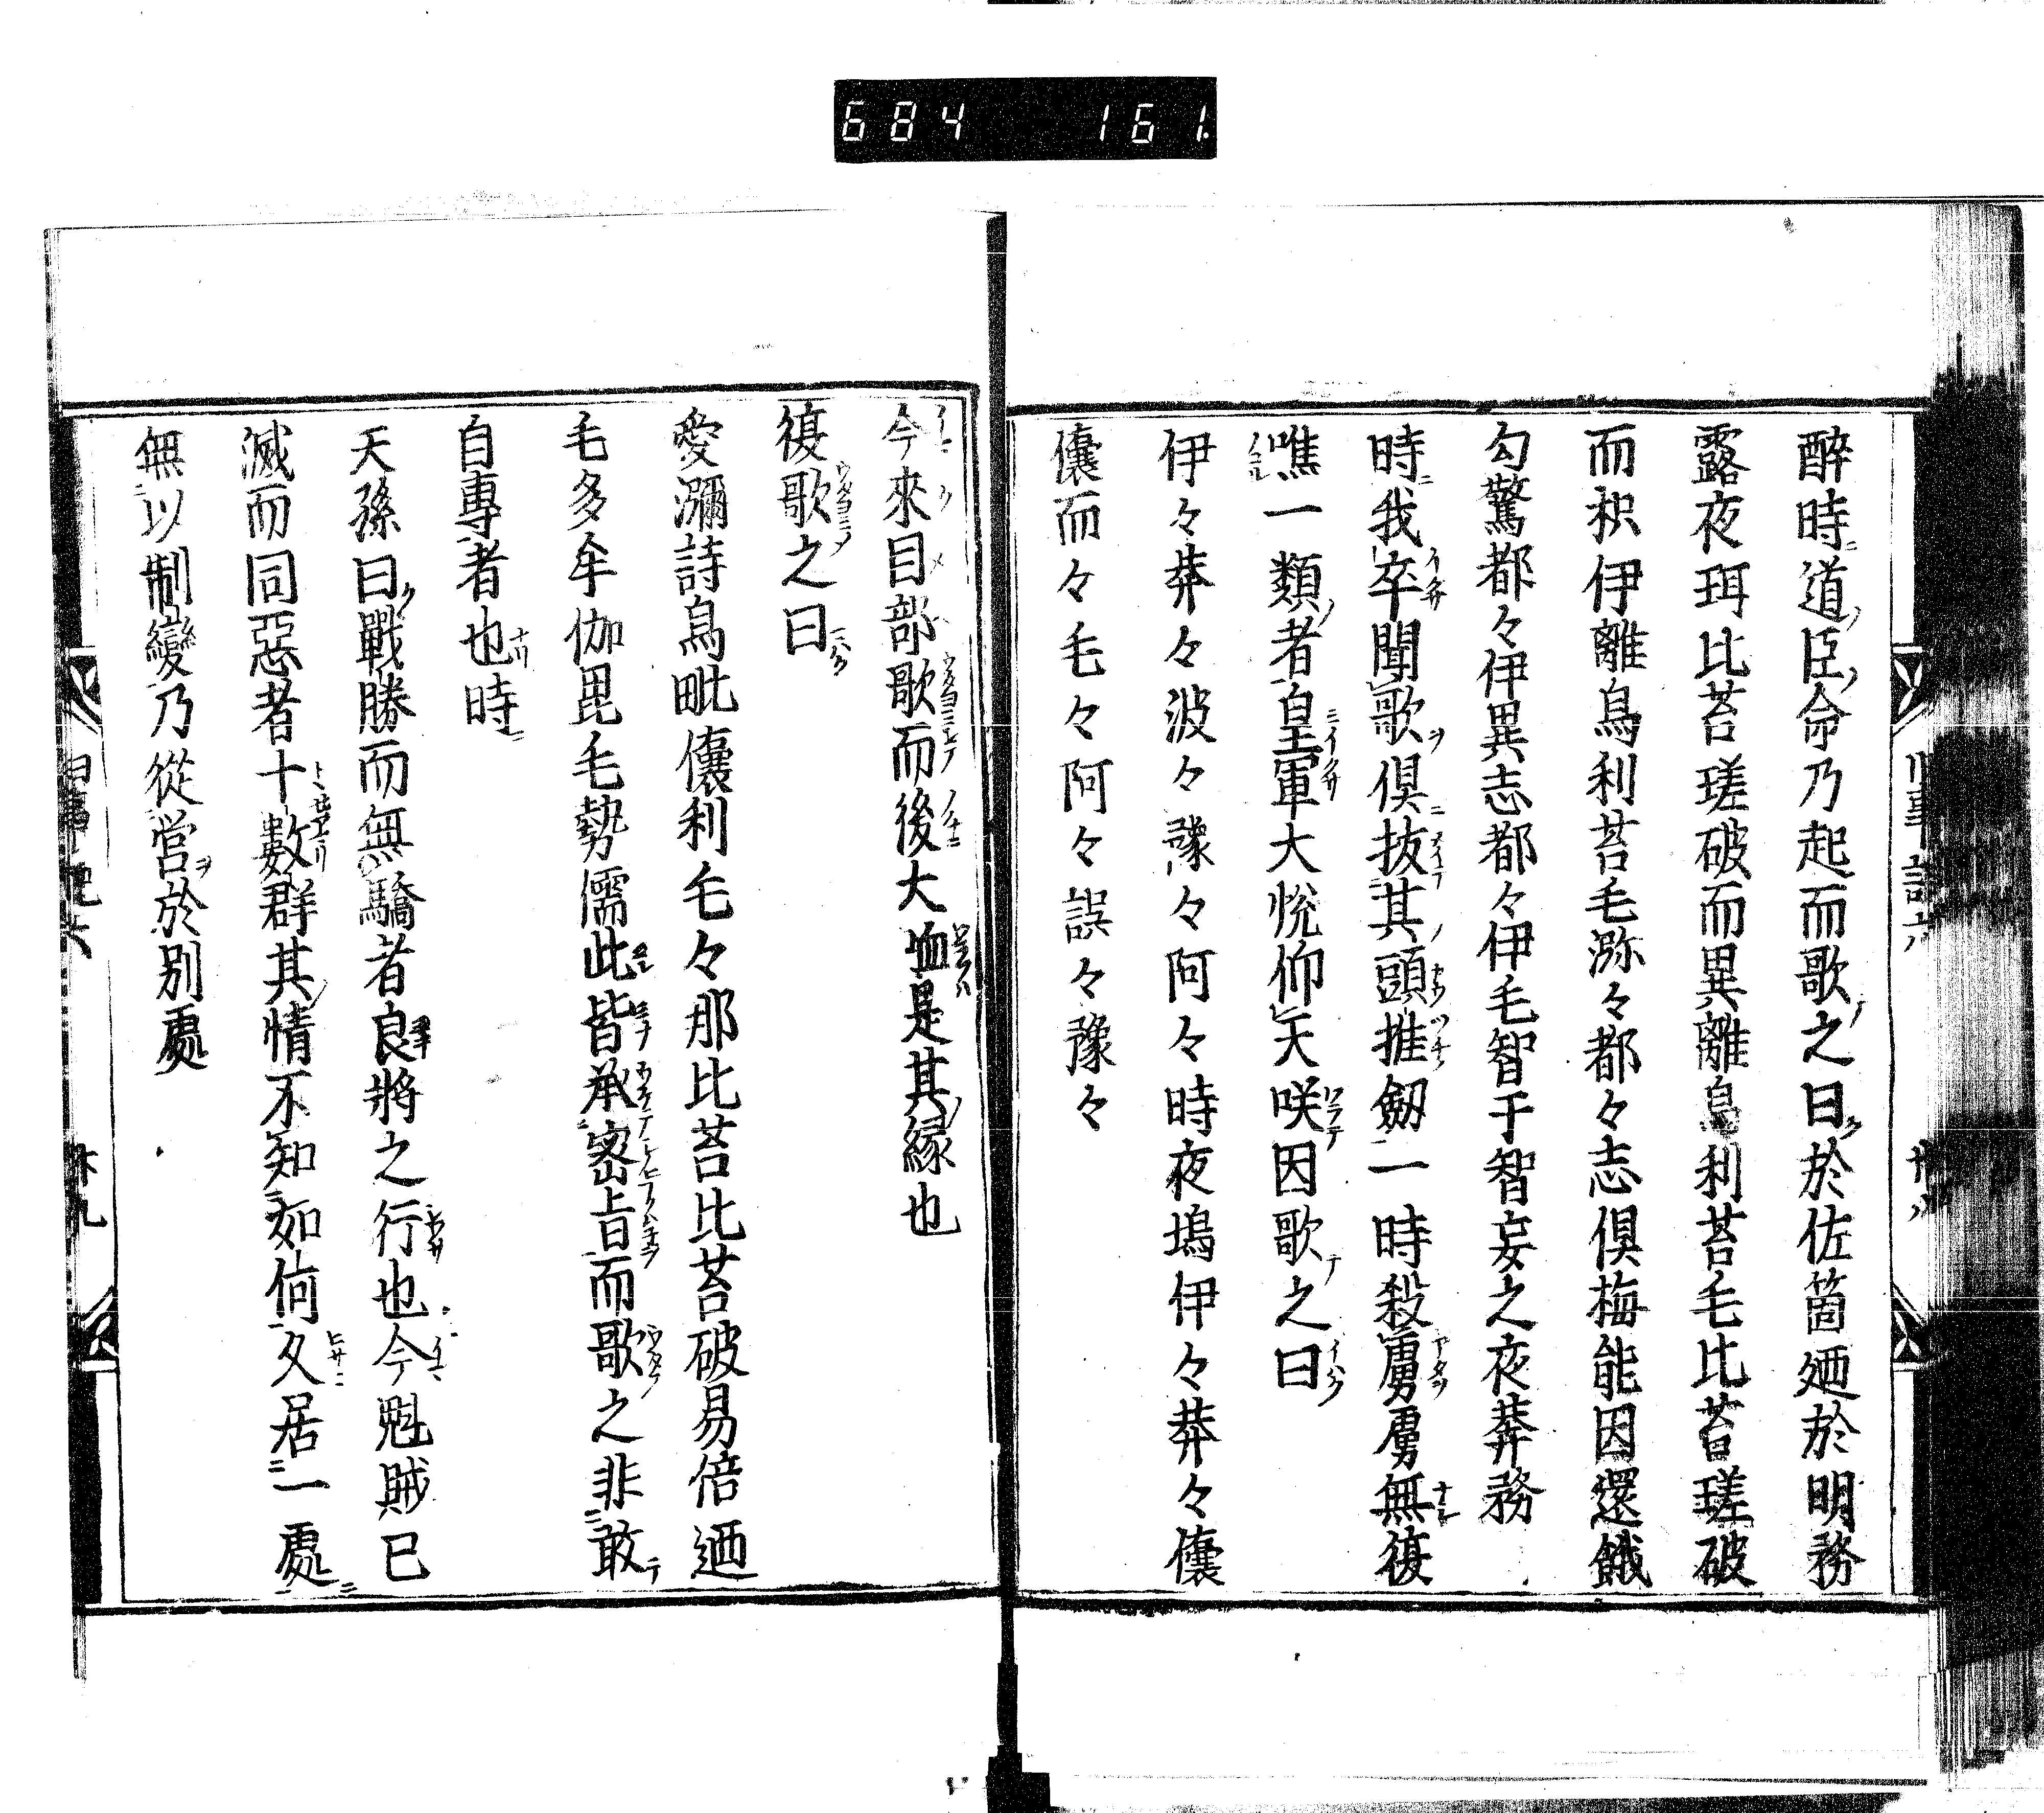 684 161.
醉時道臣命乃起而歌之曰於佐箇廼於明務
露夜珥比苔瑳破而異離鳥利苔毛比苔瑳破
而枳伊離鳥利苔毛瀰々都々志倶梅能因還餓
勾驚都々伊異志都々伊毛智于智妄之夜莽務
時我卒聞歌倶抜其頭推劔一時殺虜虜無復
噍一類者皇軍大悦仰天咲因歌之曰
伊々莽々波々豫々阿々時夜塢伊々莽々儾
儾而々毛々阿々誤々豫々
今來目部歌而後大𫡏是其縁也
復歌之曰
愛瀰詩鳥毗儾利毛々那比苔比苔破易倍廼
毛多牟伽毘毛勢儒此皆承密旨而歌之非敢
自專者也時
天孫曰戰勝而無驕者良將之行也今魁賊已
滅而同惡者十數群其情不知如何久居一處
無以制變乃從営於別處